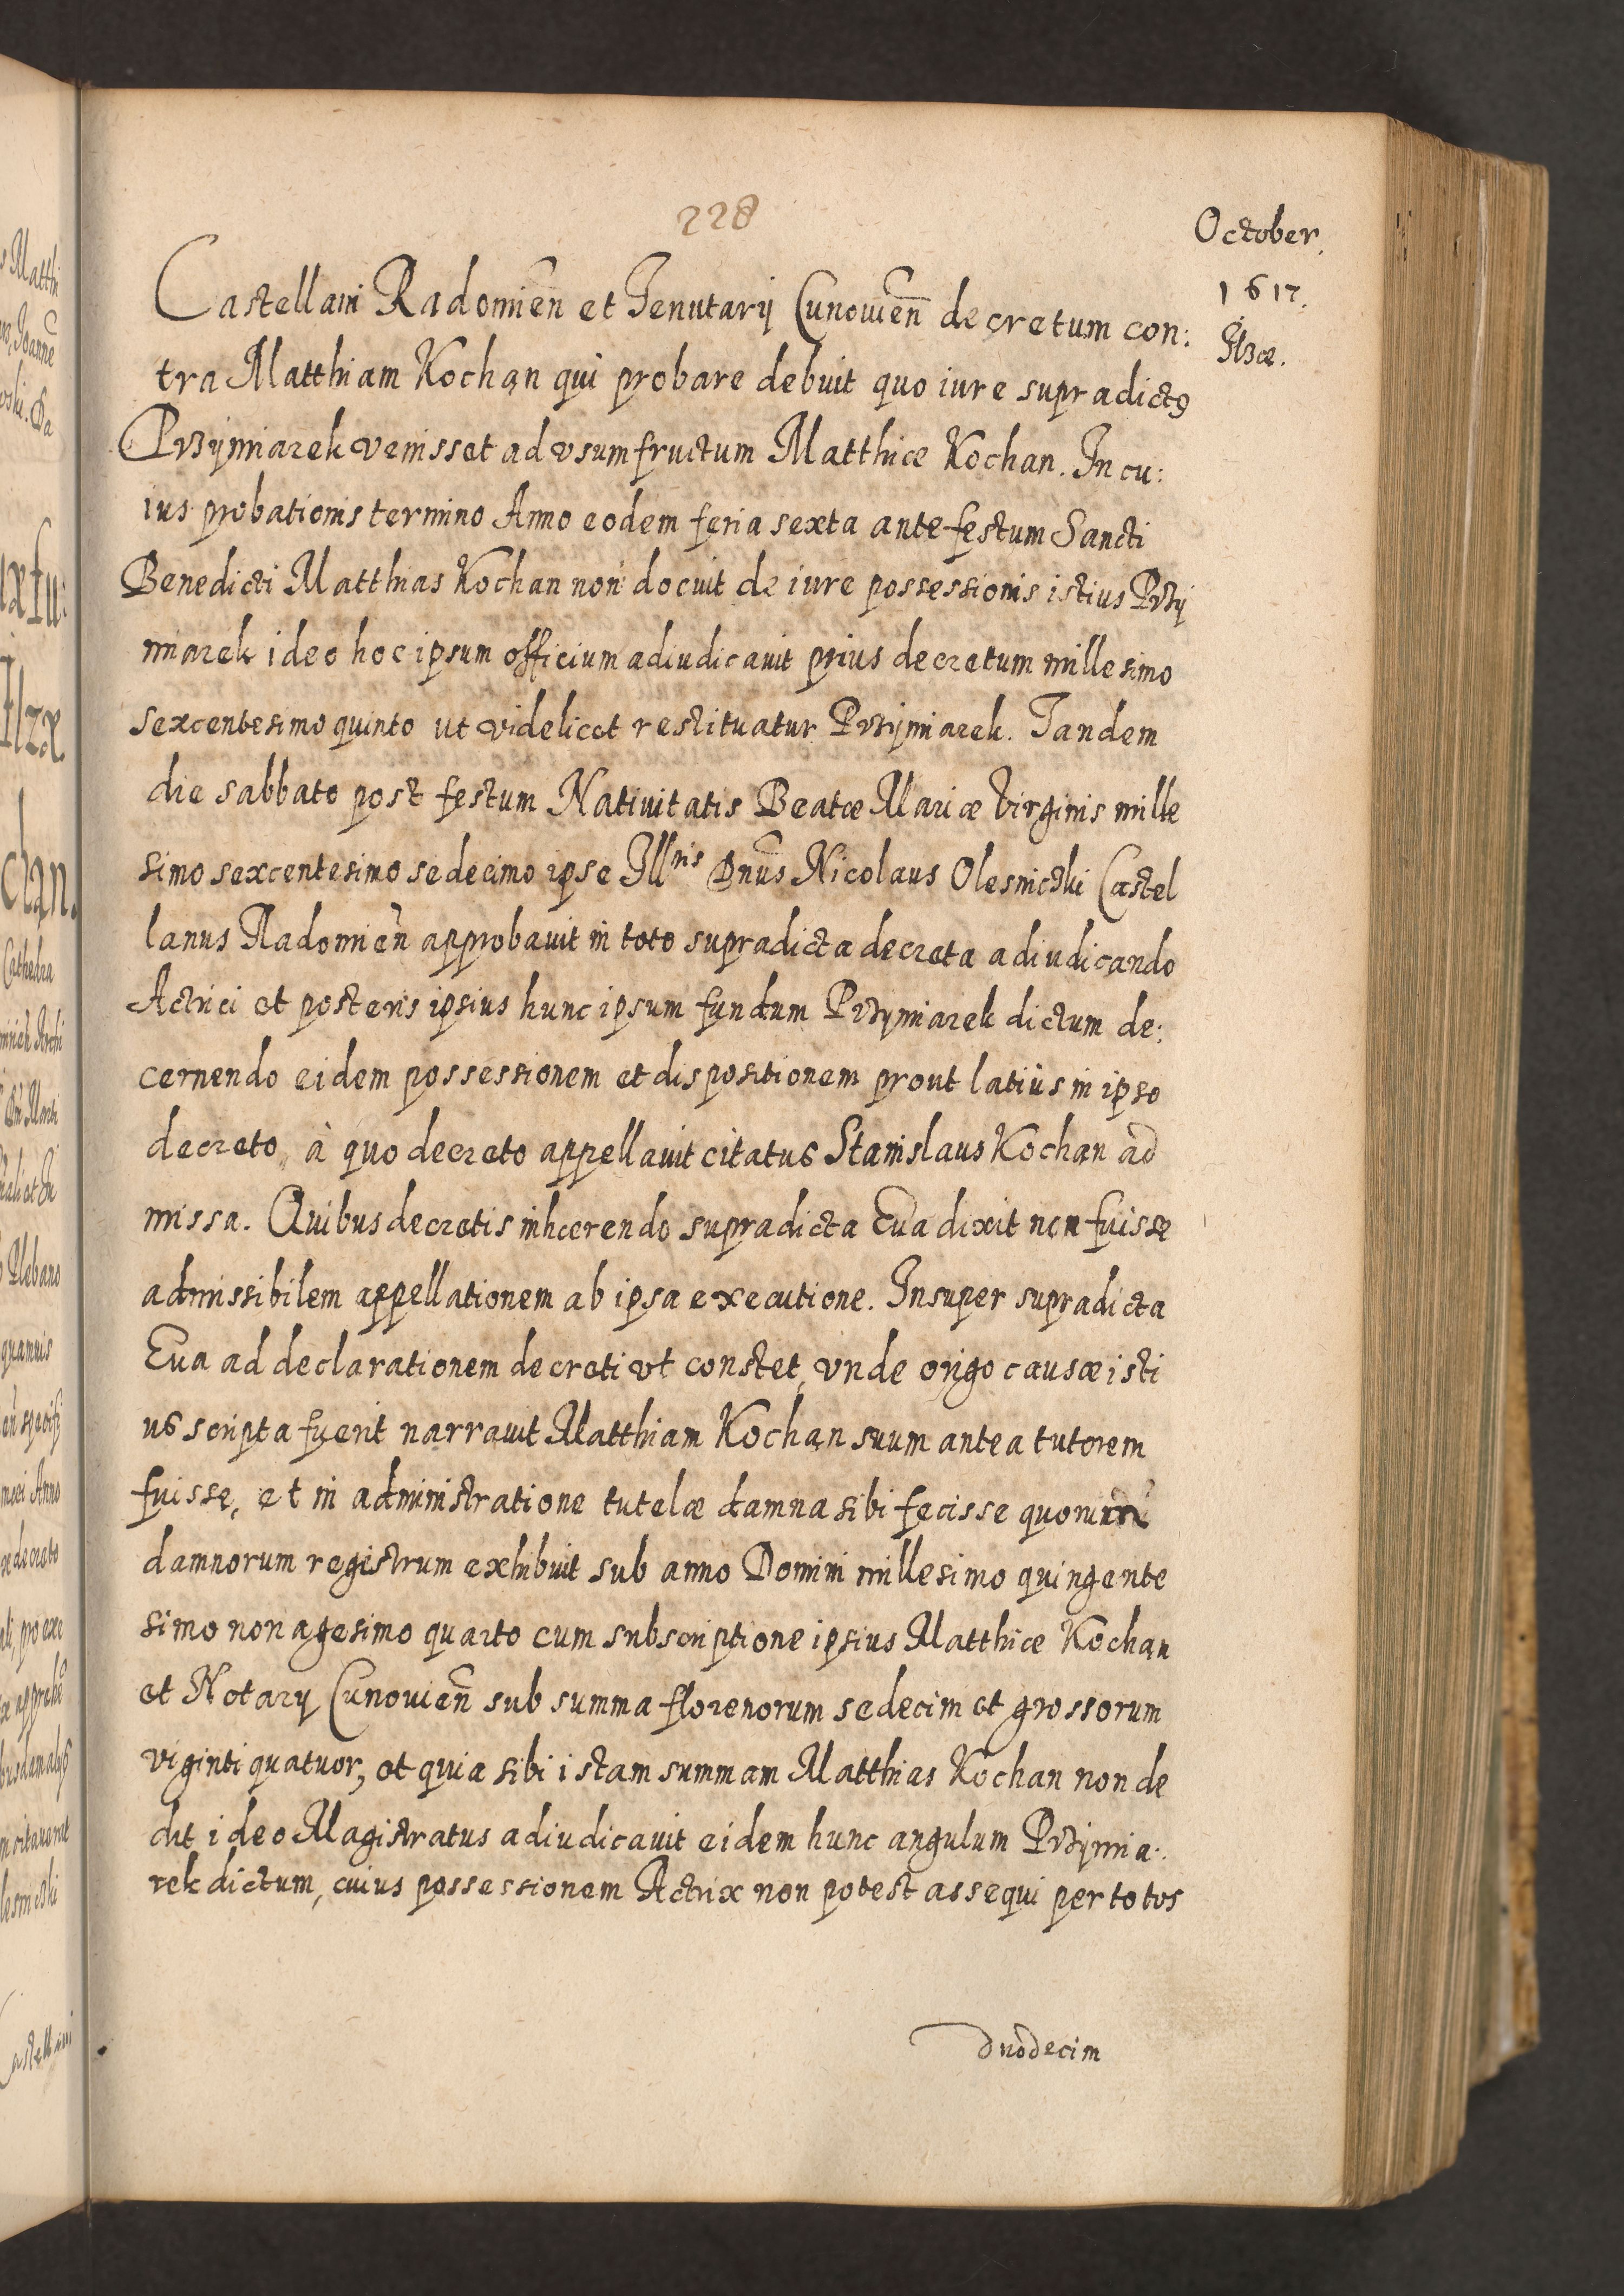 228
October.
1617.
Ilzæ.
Castellani Radomien̄ et Tenutarij Cunouien̄ decretum con:
tra Matthiam Kochan qui probare debuit quo iure supradictꝰ
Przÿmiarek venisset ad vsumfructum Matthiæ Kochan. In cu:
ius probationis termino Anno eodem feria sexta ante festum Sancti
Benedicti Matthias Kochan non docuit de iure possessionis istius Przÿ
miarek ideo hoc ipsum officium adiudicauit prius decretum millesimo
sexcentesimo quinto ut videlicet restituatur Przÿmiarek. Tandem
die sabbato post festum Natiuitatis Beatæ Mariæ Virginis mille
simo sexcentesimo sedecimo ipse Illris Dnus Nicolaus Olesnicski Castel
lanus Radomien̄ approbauit in toto supradicta decreta adiudicando
Actrici et posteris ipsius hunc ipsum fundum Przÿmiarek dictum de:
cernendo eidem possessionem et dispositionem prout latiùs in ipso
decreto, à quo decreto appellauit citatus Stanislaus Kochan ad
missa. Quibus decretis inhærendo supradicta Eua dixit non fuisse
admissibilem appellationem ab ipsa executione. Insuper supradicta
Eua ad declarationem decreti vt constet, vnde origo causæ isti
us scripta fuerit narrauit Matthiam Kochan suum antea tutorem
fuisse, et in administratione tutelæ damna sibi fecisse quorum
damnorum registrum exhibuit sub anno Domini millesimo quingente
simo nonagesimo quarto cum subscriptione ipsius Matthiæ Kochan
et Notarij Cunouien̄ sub summa florenorum sedecim et grossorum
viginti quatuor, et quia sibi istam summam Matthias Kochan non de
dit ideo Magistratus adiudicauit eidem hunc angulum Przÿmia:
rek dictum, cuius possessionem Actrix non potest assequi per totos
duodecim